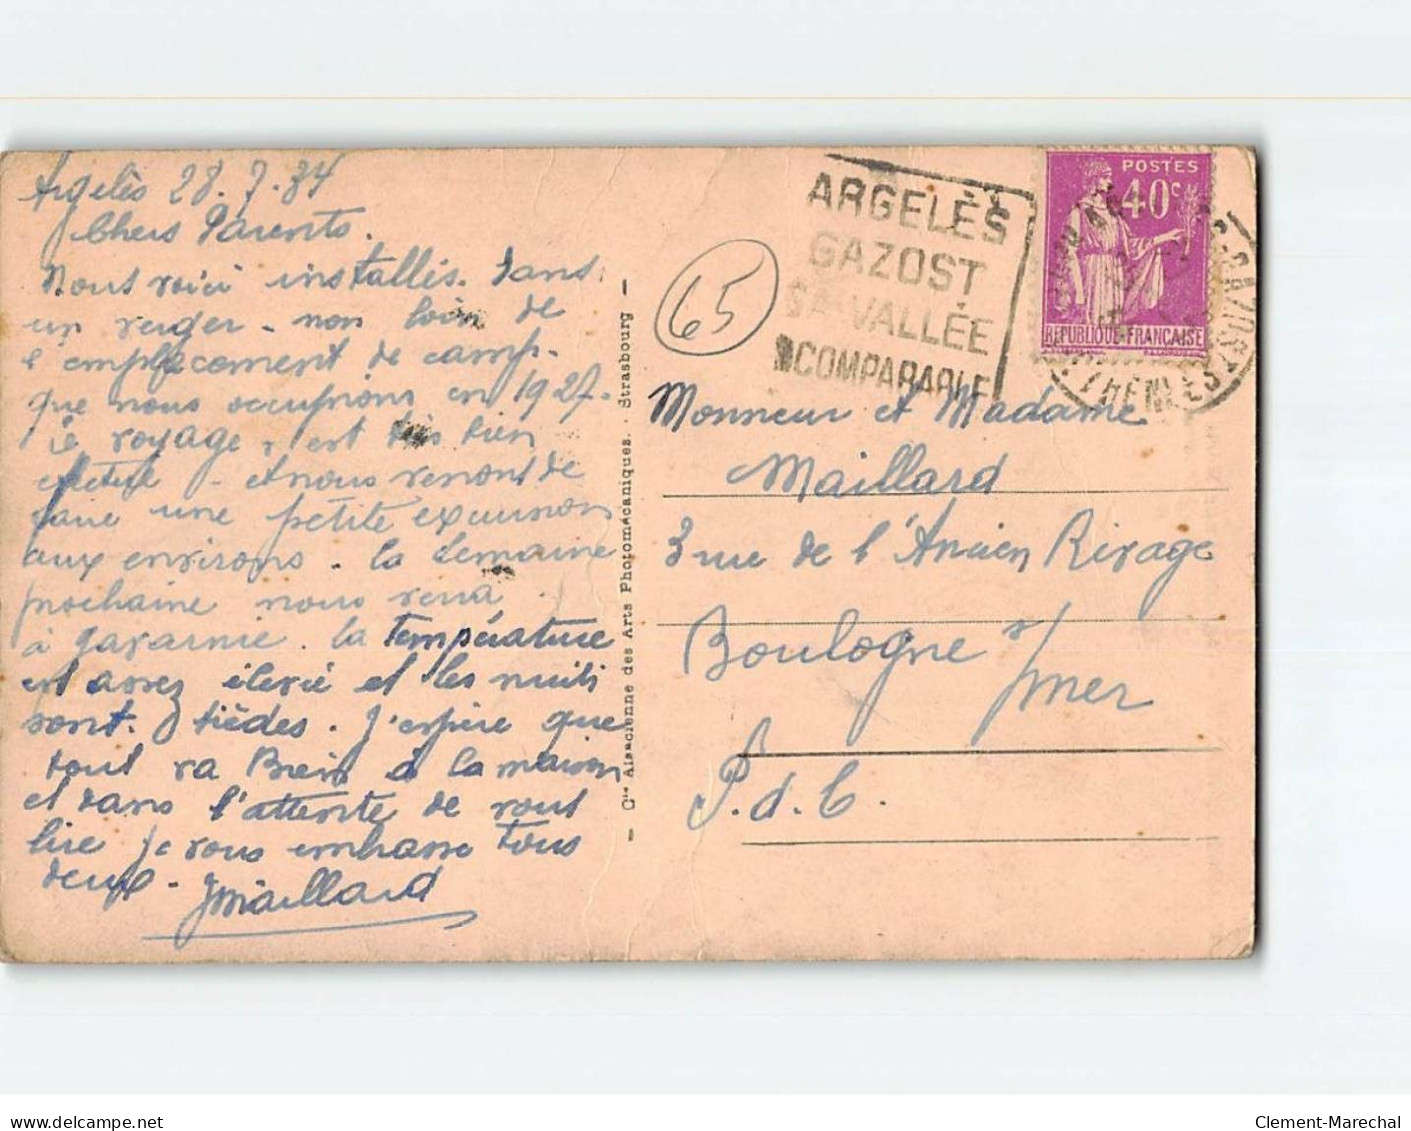 Argelès 28.7.34
Chers Parents.
Nous voici installés. dans
un verger - non loin de
l'emplacement de camp.
que nous occupions en 1927.
le voyage s'est très bien
effectué - et nous venons de
faire une petite excursion
aux environs. la semaine
prochaine nous verra
à gavarnie. la température
est assez élevée et les nuits
sont tièdes. J'espère que
tout va Bien à la maison
et dans l'attente de vous
lire je vous embrasse tous
deux. JMaillard
— Cie Alsacienne des Arts Photomécaniques. Strasbourg —
65
ARGELÈS
GAZOST
SA VALLÉE
INCOMPARABLE
POSTES
40c
REPUBLIQUE FRANCAISE
Monsieur et Madame
Maillard
3 rue de l'Ancien Rivage
Boulogne s/mer
P.d.C.
www.delcampe.net
Clement-Marechal